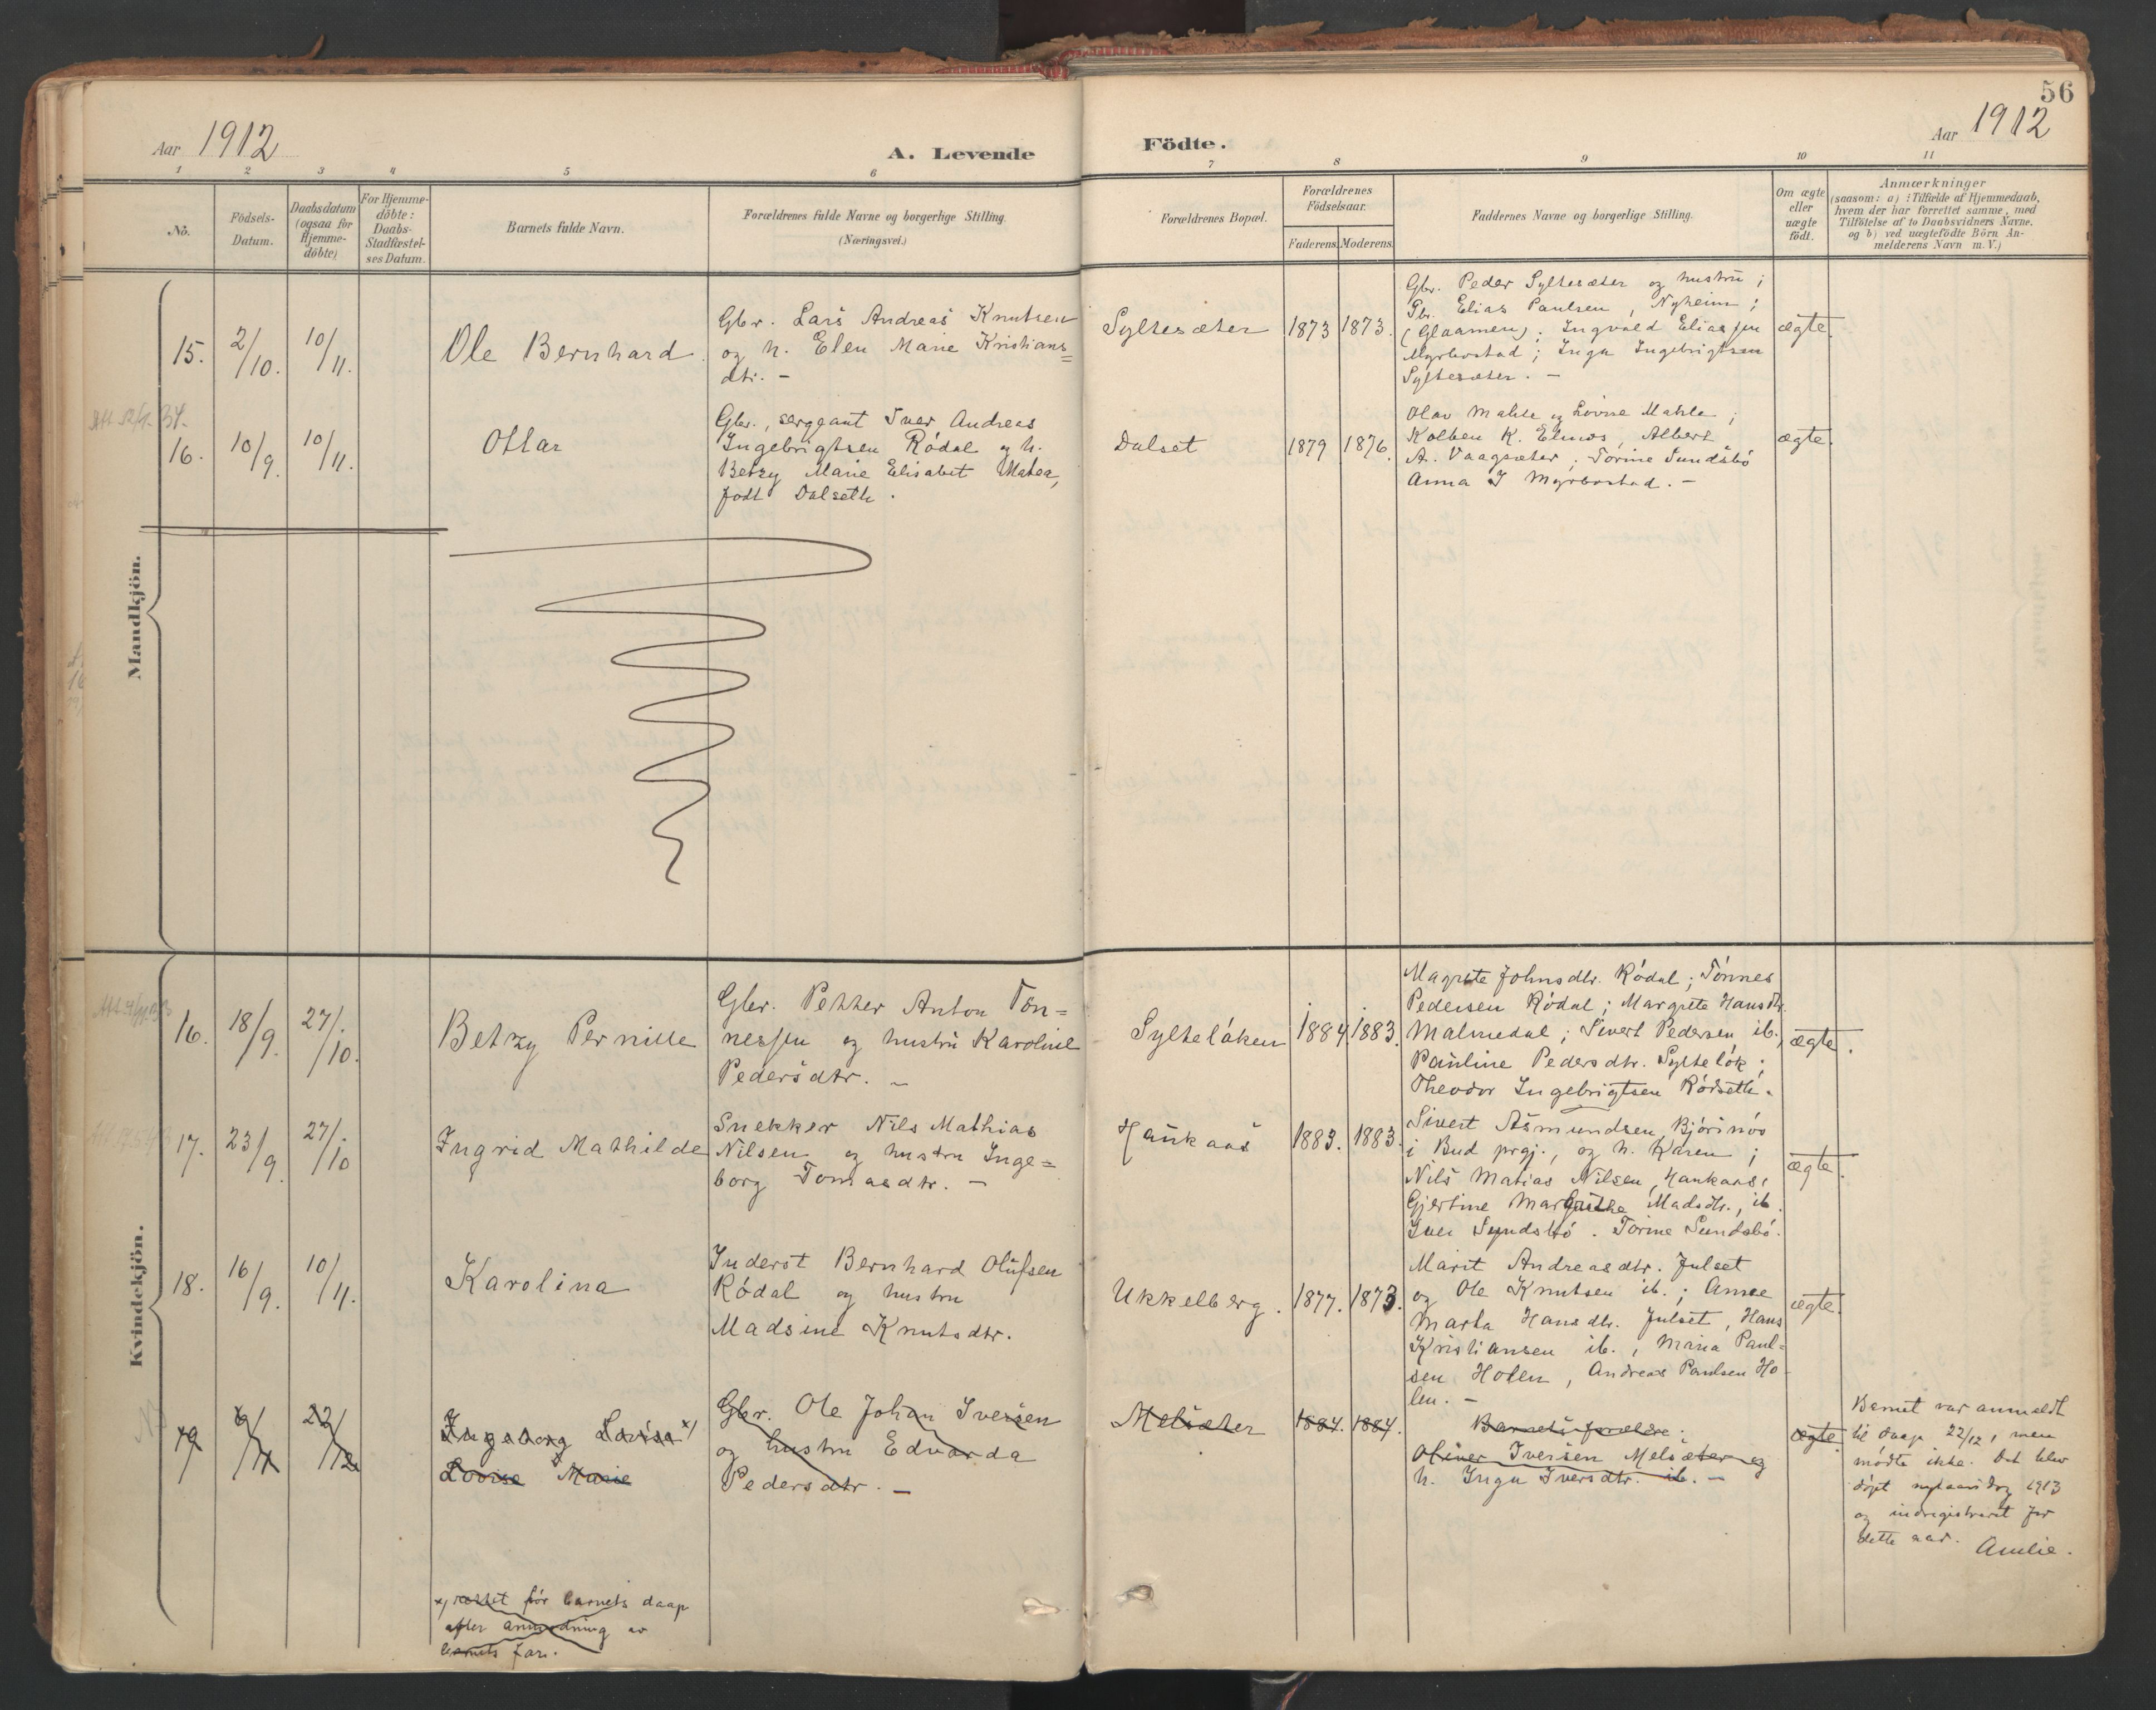 56
Aar 1912
A. Levende
Födte.
Aar 1912
1 2 3 4 5 6 7 8 9 10 11
No.
Födsels-
Datum.
Daabsdatum
(ogsaa for
Hjemme-
döbte)
For Hjemme-
döbte:
Daabs-
Stadfæstel-
ses Datum.
Barnets fulde Navn.
Forældrenes fulde Navne og borgerlige Stilling.
(Næringsvei.)
Forældrenes Bopæl.
Forældrenes
Födselsaar.
Faderens. Moderens.
Faddernes Navne og borgerlige Stilling.
Om ægte
eller
uægte
födt.
Anmærkninger
(saasom: a) i Tilfælde af Hjemmedaab,
hvem der har forrettet samme, med
Tilföielse af to Daabsvidners Navne.
og b) ved uægtefödte Börn An-
melderens Navn m. V.)
Mandkjön.
15. 2/10. 10/11.
Ole Bernhard.
Gbr. Lars Andreas Knutsen
og h. Elen Marie Kristians=
dtr. -
Syltesæter 1873 1873.
Gbr. Peder Syltesæter og hustru ;
Gbr. Elias Paulsen, Nyheim ;
(Glaamen) ; Ingvald Eliassen
Myrbostad ; Inga Ingebrigtsen
Syltesæter. -
ægte.
16. 10/9. 10/11.
Ottar
Gbr., sergeant Iver Andreas
Ingebrigtsen Rödal og h.
Betzy Marie Elisabet Matea,
född Dalseth.
Dalset 1879 1876.
Olav Mahle og Lovise Mahle ;
Kolben K. Elnæs, Albert
A. Vaagsæter ; Torine Sundsbö
Anna I Myrbostad. -
ægte.
Kvindekjön.
16. 18/9. 27/10.
Betzy Pernille
Gbr. Petter Anton Tön=
nessen og hustru Karoline
Pedersdtr. -
Sylteløken 1884. 1883.
Magrete Johnsdtr. Rödal ; Tönnes
Pedersen Rödal ; Margrete Hansdtr.
Malmedal ; Sivert Pedersen ib.,
Pauline Pedersdtr. Syltelök ;
Theodor Ingebrigtsen Rödseth.
ægte.
17. 23/9. 27/10
Ingrid Mathilde
Snekker Nils Mathias
Nilsen og hustru Inge=
borg Tomasdtr. -
Haukaas 1883. 1883.
Sivert Asmundsen Björinös
i Bud prgj., og h. Karen ;
Nils Matias Nilsen, Haukaas ;
Gjertine Margrethe Madsdtr., ib.
Iver Sundsbö. Torine Sundsbö.
ægte.
18. 16/9. 10/11.
Karolina
Inderst Bernhard Olufsen
Rödal og hustru
Madsine Knutsdtr.
Ukkelberg. 1877. 1873.
Marit Andreasdtr. Julset
og Ole Knutsen ib. ; Anne
Marta Hansdtr. Julset, Hans
Kristiansen ib., Maria Paul=
sen Holen, Andreas Paulsen Ho
len. -
ægte.
19 6/11 22/12.
Ingeborg Lovisa x)
Lovise Marie
Gbr. Ole Johan Iversen
og hustru Edvarda
Pedersdtr. -
Melsæter 1884. 1884.
Barnets forældre ;
Oliver Iversen Melsæter og
h. Inga Iversdtr. ib. -
ægte
Barnet var anmeldt
til daap 22/12, men
mödte ikke. Det blev
döpt nytaarsdag 1913
og indregistreret for
dette aar. Amlie.
x) rettet för barnets daap
efter anmodning av
barnets far.